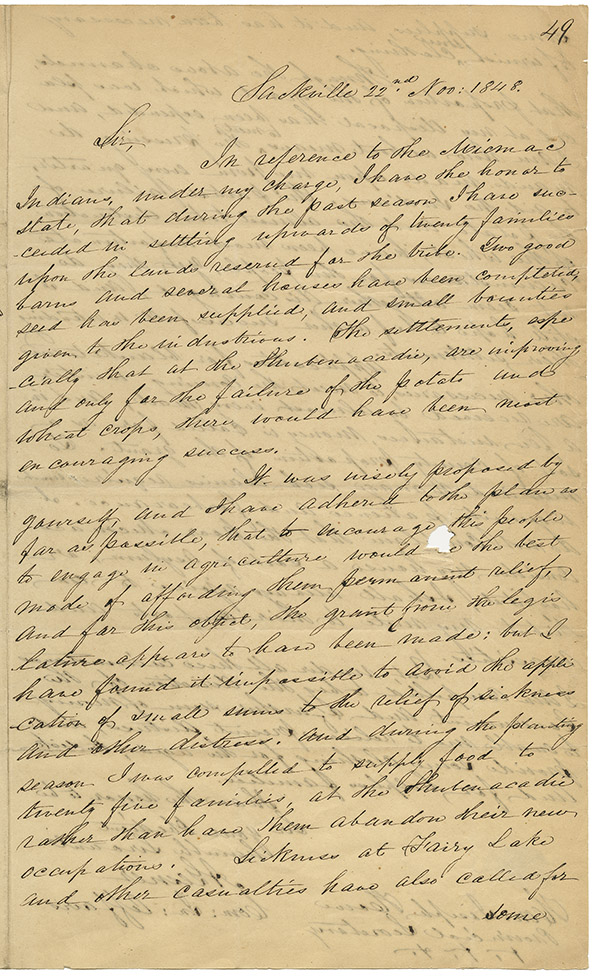 49
Sackville 22nd Nov: 1848.
Sir,
In reference to the Micmac
Indians, under my charge, I have the honor to
state, that during the past season I have suc-
-ceeded in settling upwards of twenty families
upon the lands reserved for the tribe. Two good
barns and several houses have been completed,
seed has been supplied, and small bounties
given to the industrious. The settlements, espe
-cially that at the Shubenacadie, are improving
and only for the failure of the potato and
wheat crops, there would have been most
encouraging success.
It was wisely proposed by
yourself, and I have adhered to the plan as
far as possible, that to encourage this people
to engage in agriculture would e the best
mode of affording them permanent relief,
and for this object, the grant from the legis
lature appears to have been made: but I
have found it impossible to avoid the appli
-cation of small sums to the relief of sickness
and other distress. And during the planting
season I was compelled to supply food to
twenty five families, at the Shubenacadie
rather than have them abandon their new
occupations. Sickness at Fairy Lake
and other casualties have also called for
some